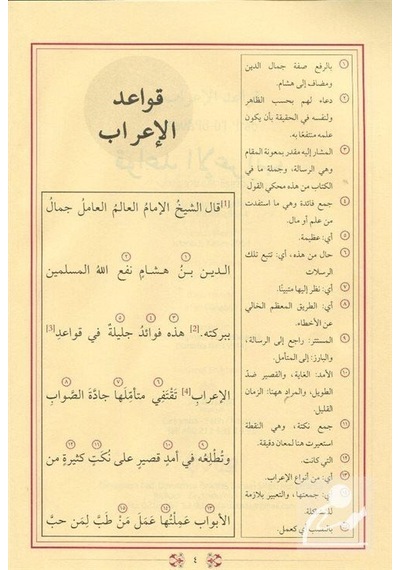 قواعد
الإعراب
[1]قال الشيخُ الإمامُ العالمُ العاملُ جمالُ
الدينِ بنُ هشامٍ نفعَ اللهُ المسلمين
ببركته. [2] هذه فوائدُ جليلةٌ في قواعدِ[3]
الإعرابِ[4] تَقْتَفِي متأمِّلَها جادَّةَ الصَّوابِ
وتُطْلِعُه في أمدٍ قصيرٍ على نُكَتٍ كثيرةٍ من
الأبوابِ عَمِلْتُها عَمَلَ مَنْ طَبَّ لِمَن حبَّ
١ بالرفع صفة جمال الدين
ومضاف إلى هشام.
٢ دعاء لهم بحسب الظاهر
ولنفسه في الحقيقة بأن يكون
علمه منتفعًا به.
٣ المشار إليه مقدر بمعونة المقام
وهي الرسالة، وجملة ما في
الكتاب من هذه محكي القول
٤ جمع فائدة وهي ما استفدت
من علم أو مال.
٥ أي: عظيمة.
٦ حال من هذه، أي: تتبع تلك
الرسالات
٧ أي: نظر إليها متبينًا.
٨ أي: الطريق المعظم الخالي
عن الأخطاء.
٩ المستتر: راجع إلى الرسالة،
والبارز: إلى المتأمل.
١٠ الأمد: الغاية، والقصير ضدّ
الطويل، والمراد ههنا: الزمان
القليل.
١١ جمع نكتة، وهي النقطة
استعيرت هنا لمعان دقيقة.
١٢ التي كانت.
١٣ أي: من أنواع الإعراب.
أي: جمعتها، والتعبير بلازمة
كعمل.
٤